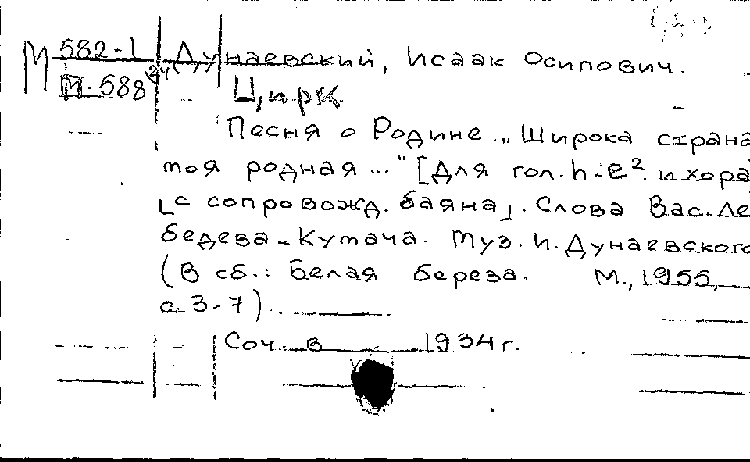 М 582-1 Дунаевский, Исаак Осипович.
М-588
Цирк
Песня о Родине „Широка страна
моя родная..." [Для гол. h-e² и хора
[с сопровожд. баяна]. Слова Вас. Ле
бедева-Кумача. Муз. И. Дунаевского
(В сб.: Белая береза. М., 1955,
с. 3-7).
Соч. в 1934 г.